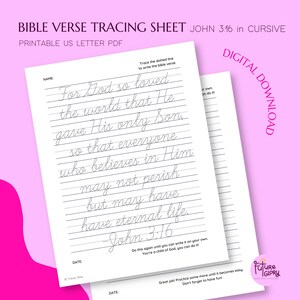 BIBLE VERSE TRACING SHEET JOHN 3:16 in CURSIVE
PRINTABLE US LETTER PDF
DIGITAL DOWNLOAD
Trace the dotted line
to write the bible verse.
NAME:
For God so loved
the world that He
gave His only Son,
so that everyone
who believes in Him
may not perish
but may have
have eternal life.
John 3:16
DATE:
Do this again until you can write it on your own.
You're a child of God, you can do it.
DATE:
Great job! Practice some more until it becomes easy.
Don't forget to have fun!
Future
Glory